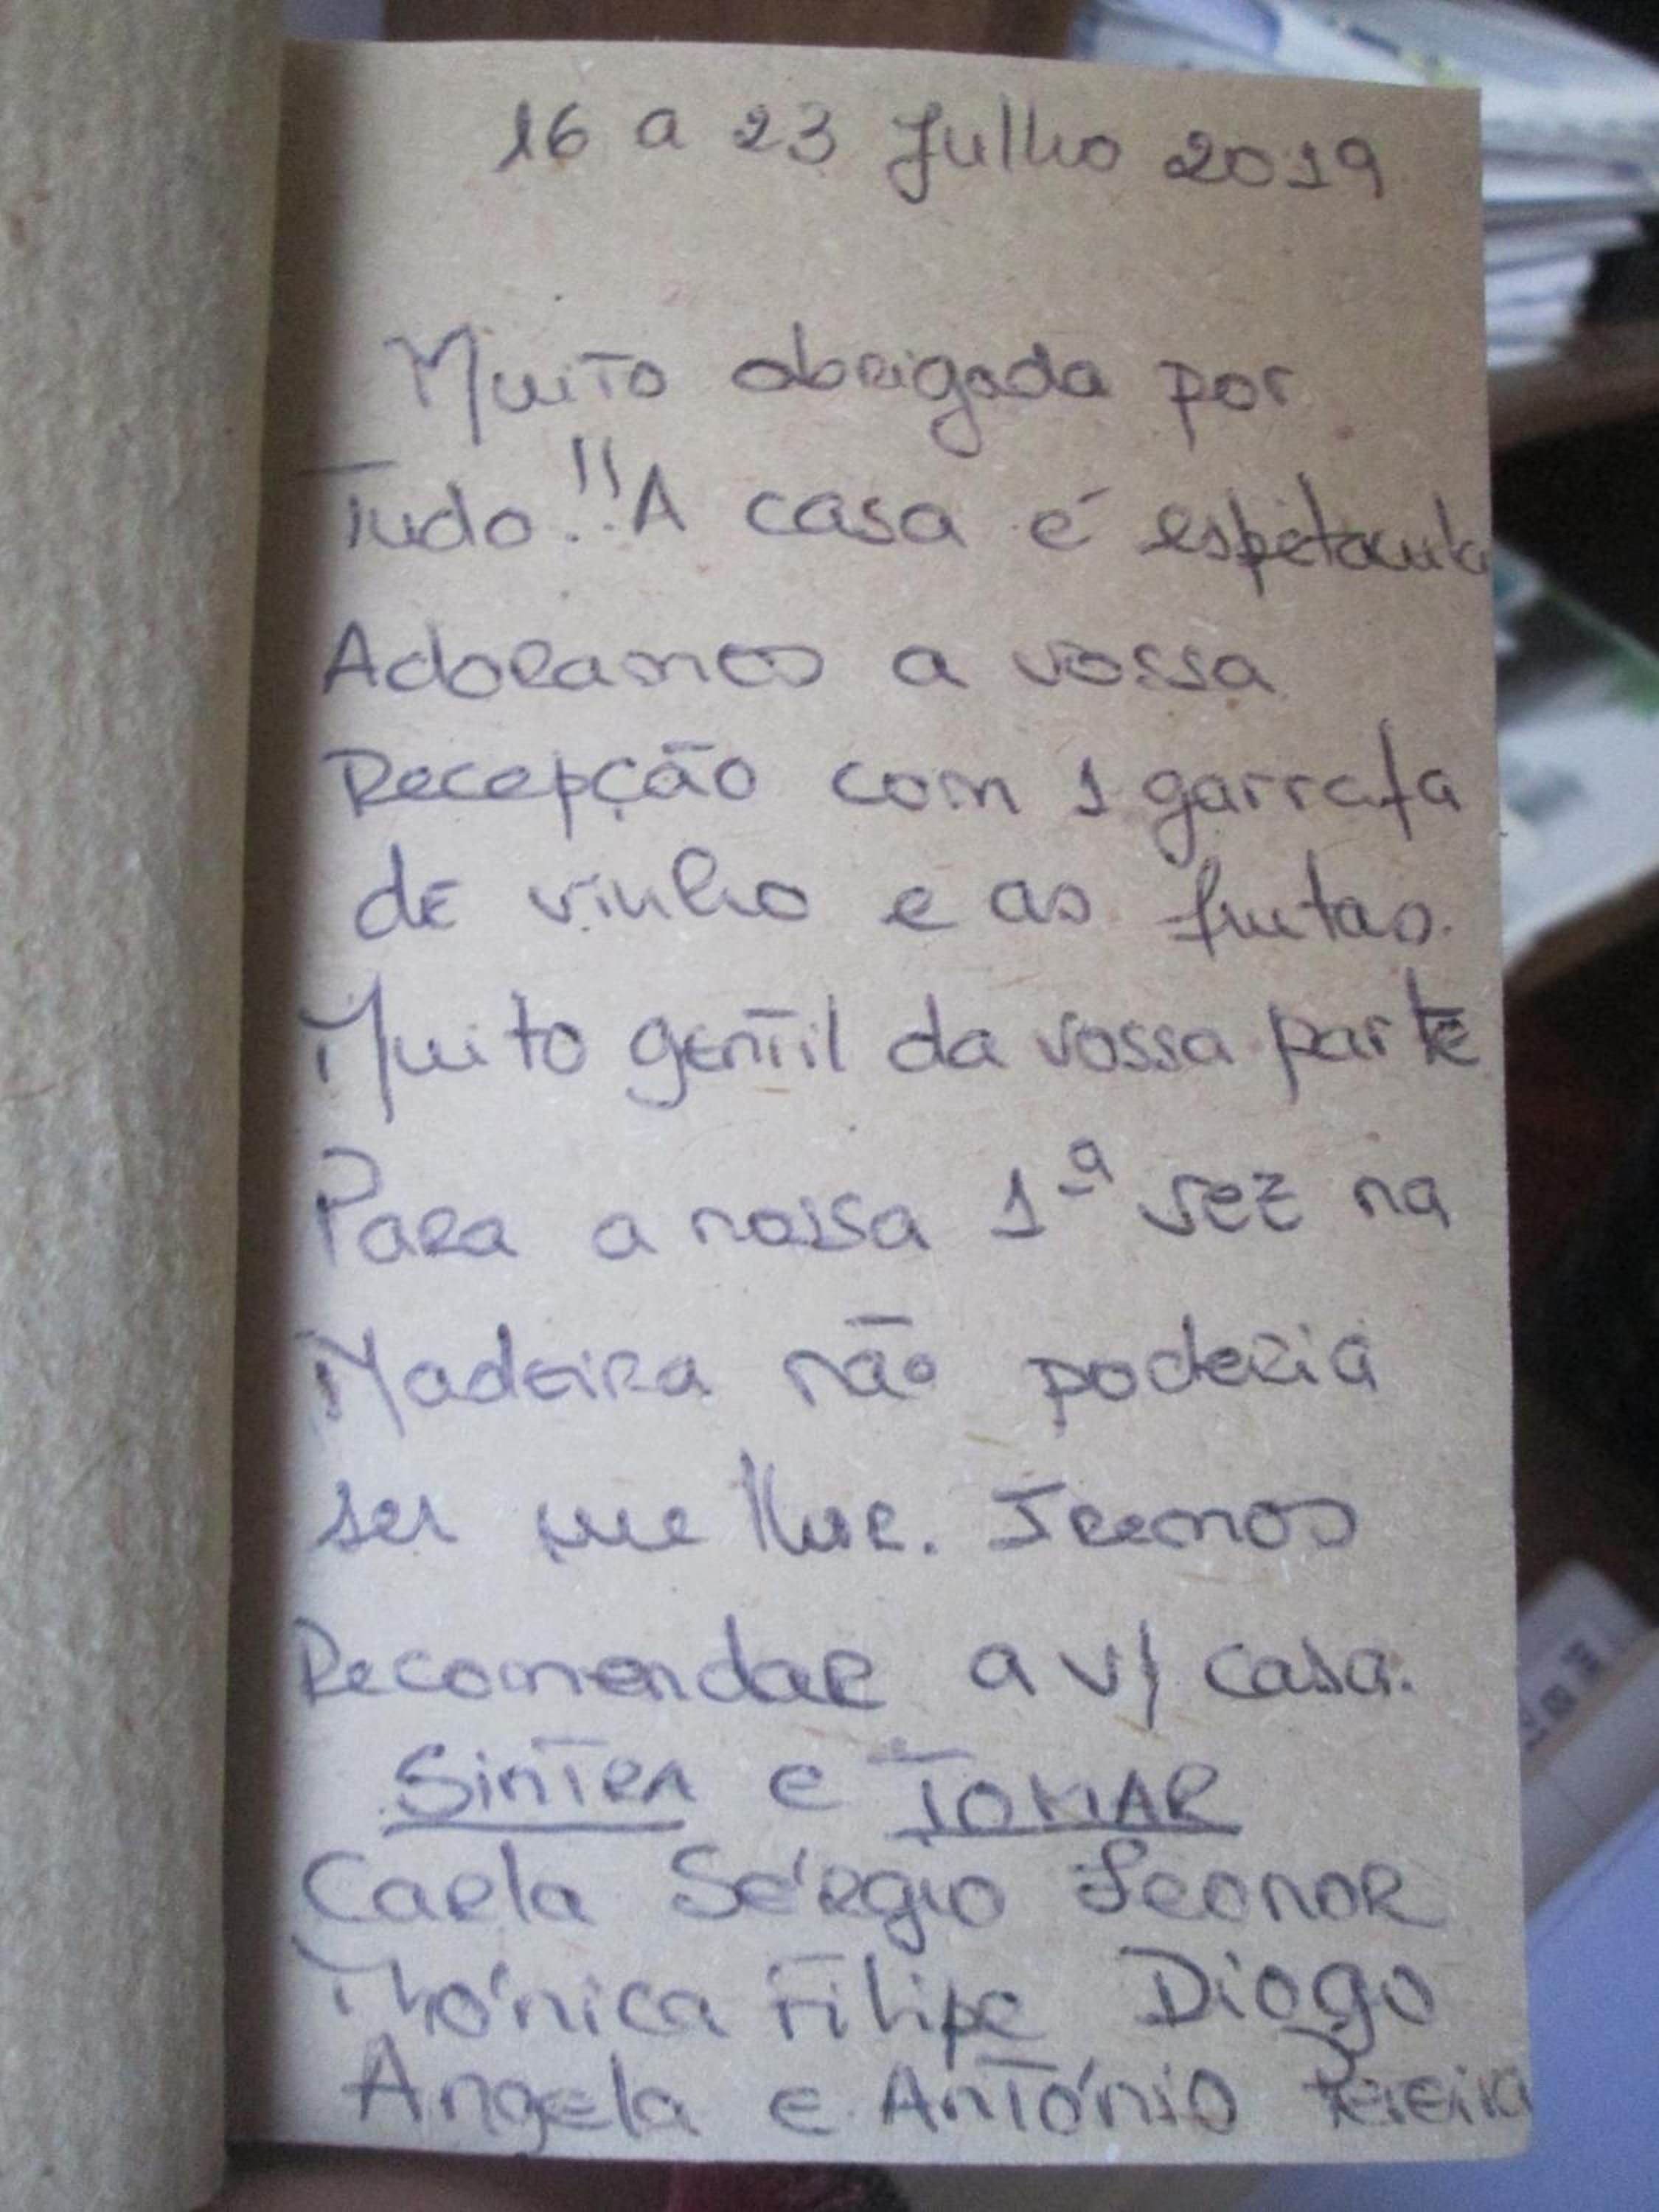 16 a 23 Julho 2019
Muito obrigada por
Tudo!!! A casa é
Adoramos a vossa
Recepção com 1 garrafa
de vinho e as frutas.
Muito gentil da vossa parte
Para a nossa 1ª vez na
Madeira não poderia
ser melhor. Iremos
Recomendar a v/ casa.
Sintra e TOMAR
Carla Sérgio Leonor
Mónica Filipe Diogo
Angela e António Pereira